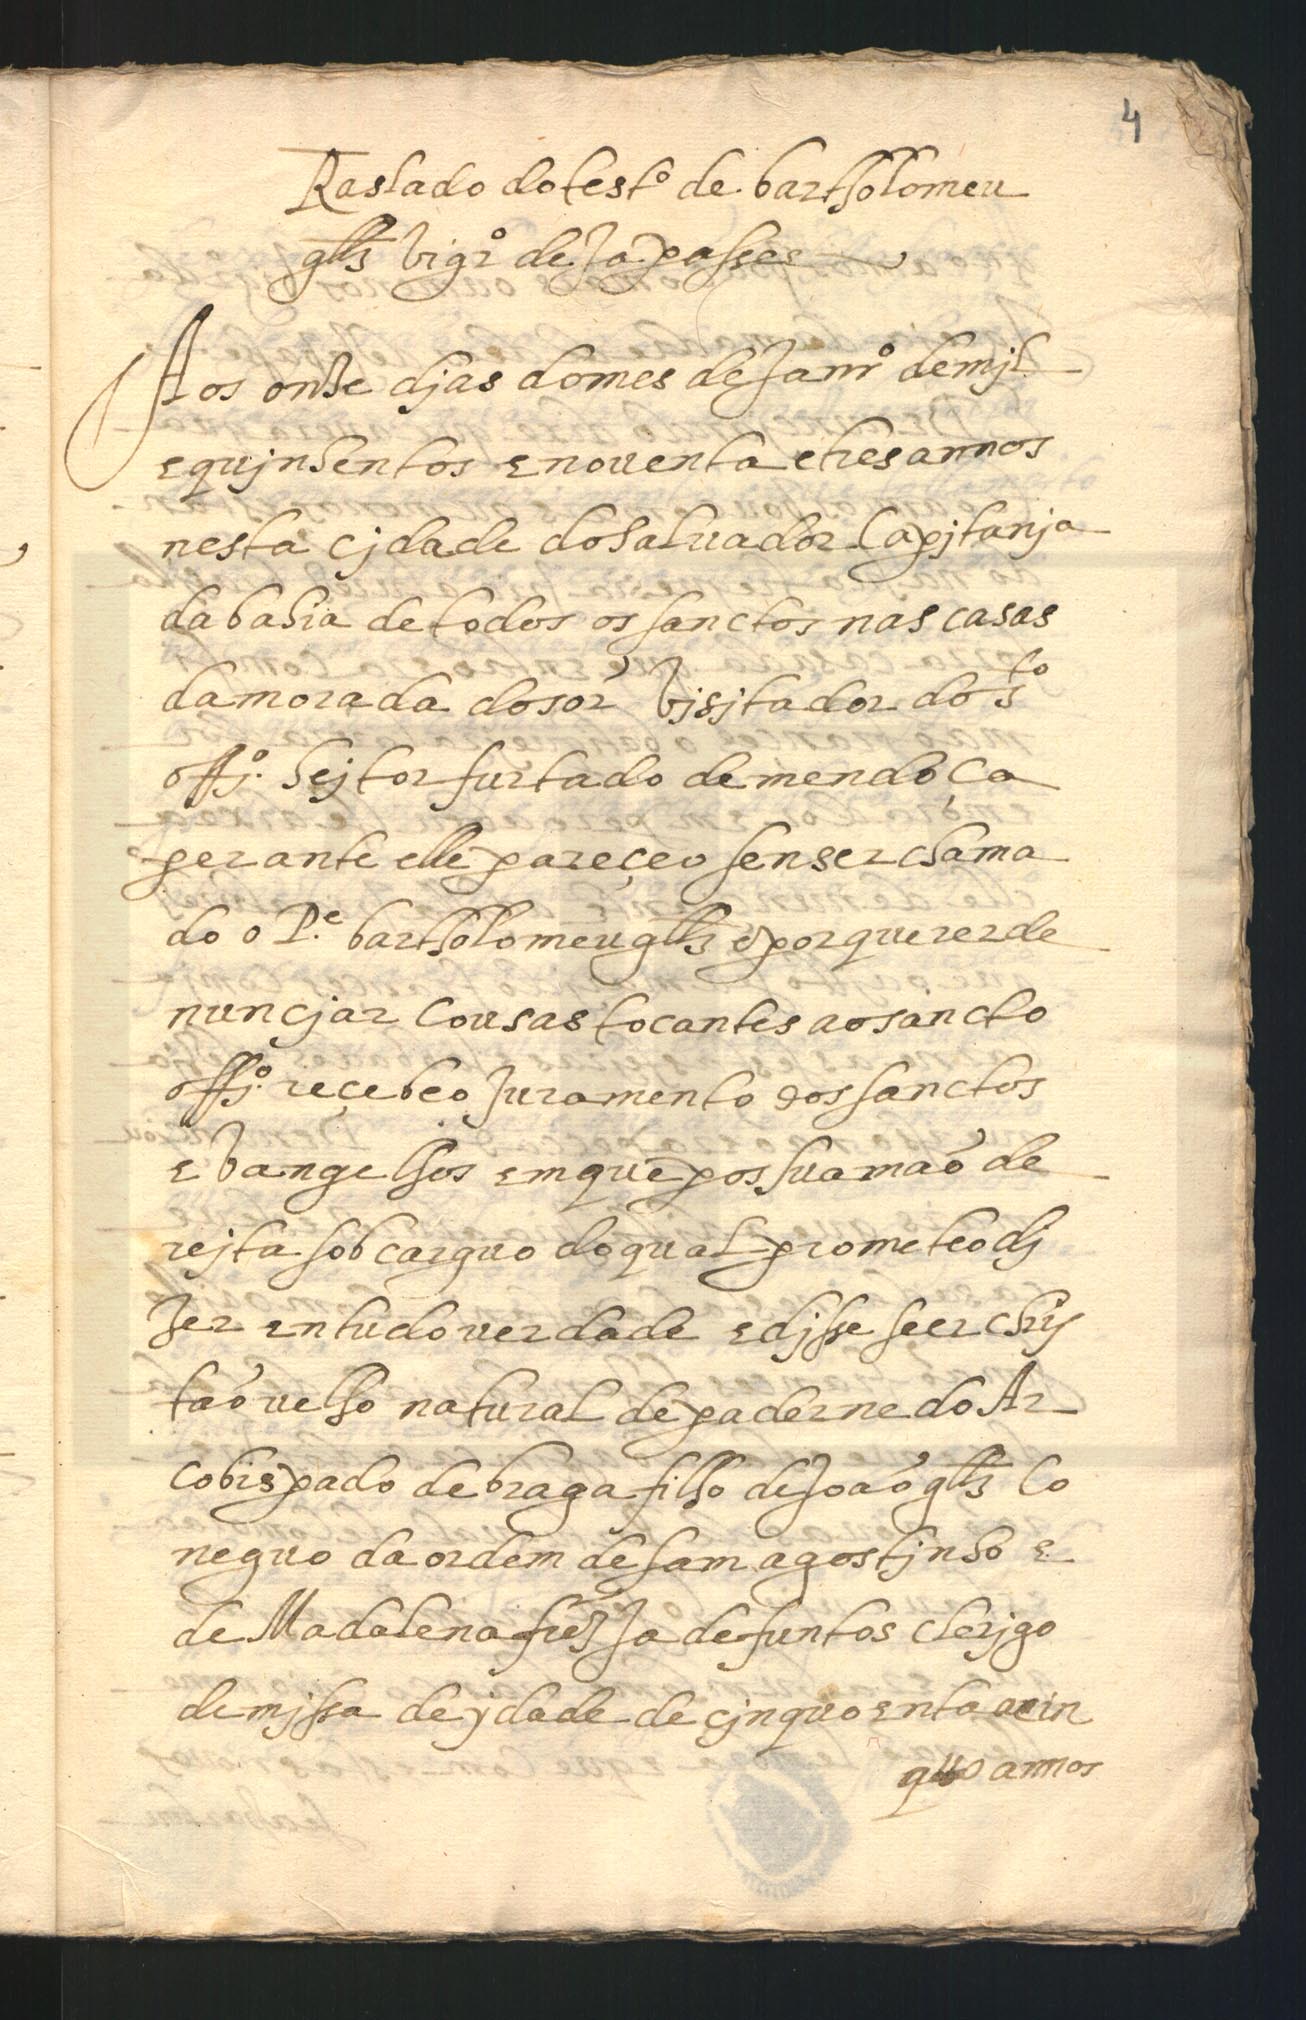 4
Raslado do test.º de bartholomeu
glz vigr.º de Japasse
Aos onze djas do mes de Janr.º de mjl
e qujnhentos e noventa e tres annos
nesta cjdade do Saluador Capjtanja
da bahia de todos os sanctos nas casas
da morada do sor Vjsjtador do s.to
offj.º hejtor furtado de mendoça
perante elle pareçeo sen ser chama
do o P.e bartholomeu glz e por querer de
nuncjar Cousas tocantes ao sancto
offj.º reçebeo Juramento dos sanctos
evangelhos em que pos sua maõ de
rejta sob carguo do qual prometeo dj
zer en tudo verdade e djsse seer chrjs
taõ velho natural de paderne do Ar
cobispado de braga filho de Joaõ glz Co
neguo da ordem de sam agostjnho e
de Madalena frz Ja defuntos clerjgo
de mjssa de ydade de çjnquoenta e cin
quo annos